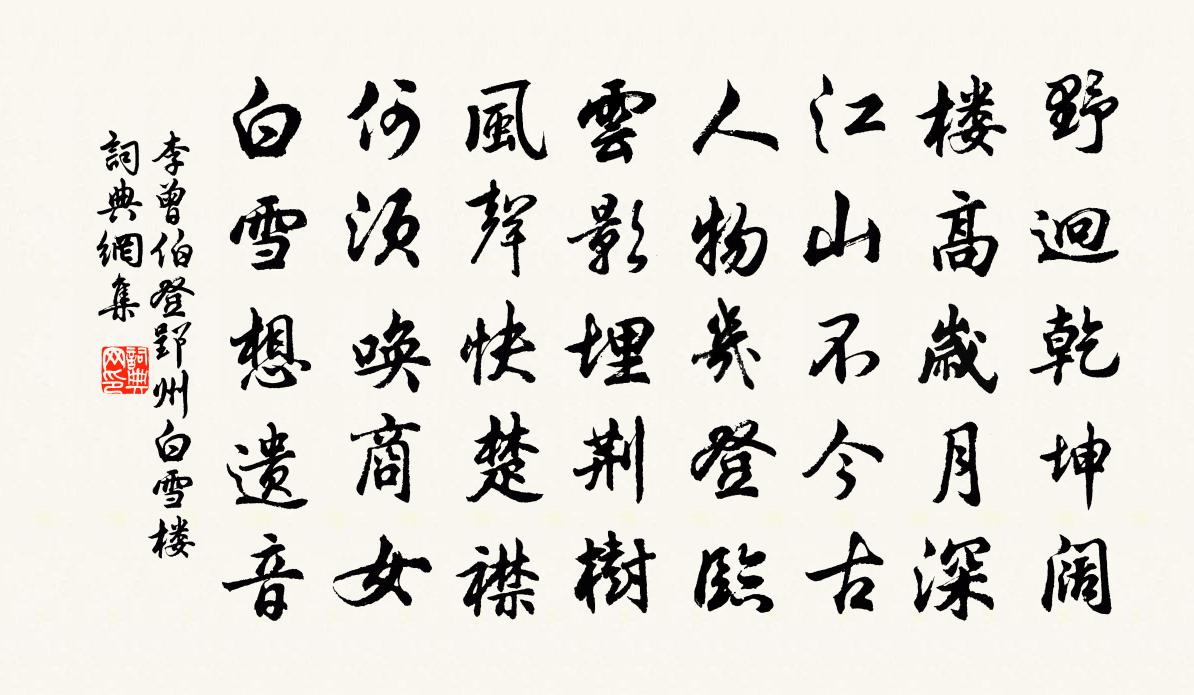 野迥乾坤阔
楼高歲月深
江山不今古
人物幾登臨
雲影埋荆樹
風聲快楚襟
何須唤商女
白雪想遺音
李曾伯登郢州白雪楼
詞典網集
詞典网印